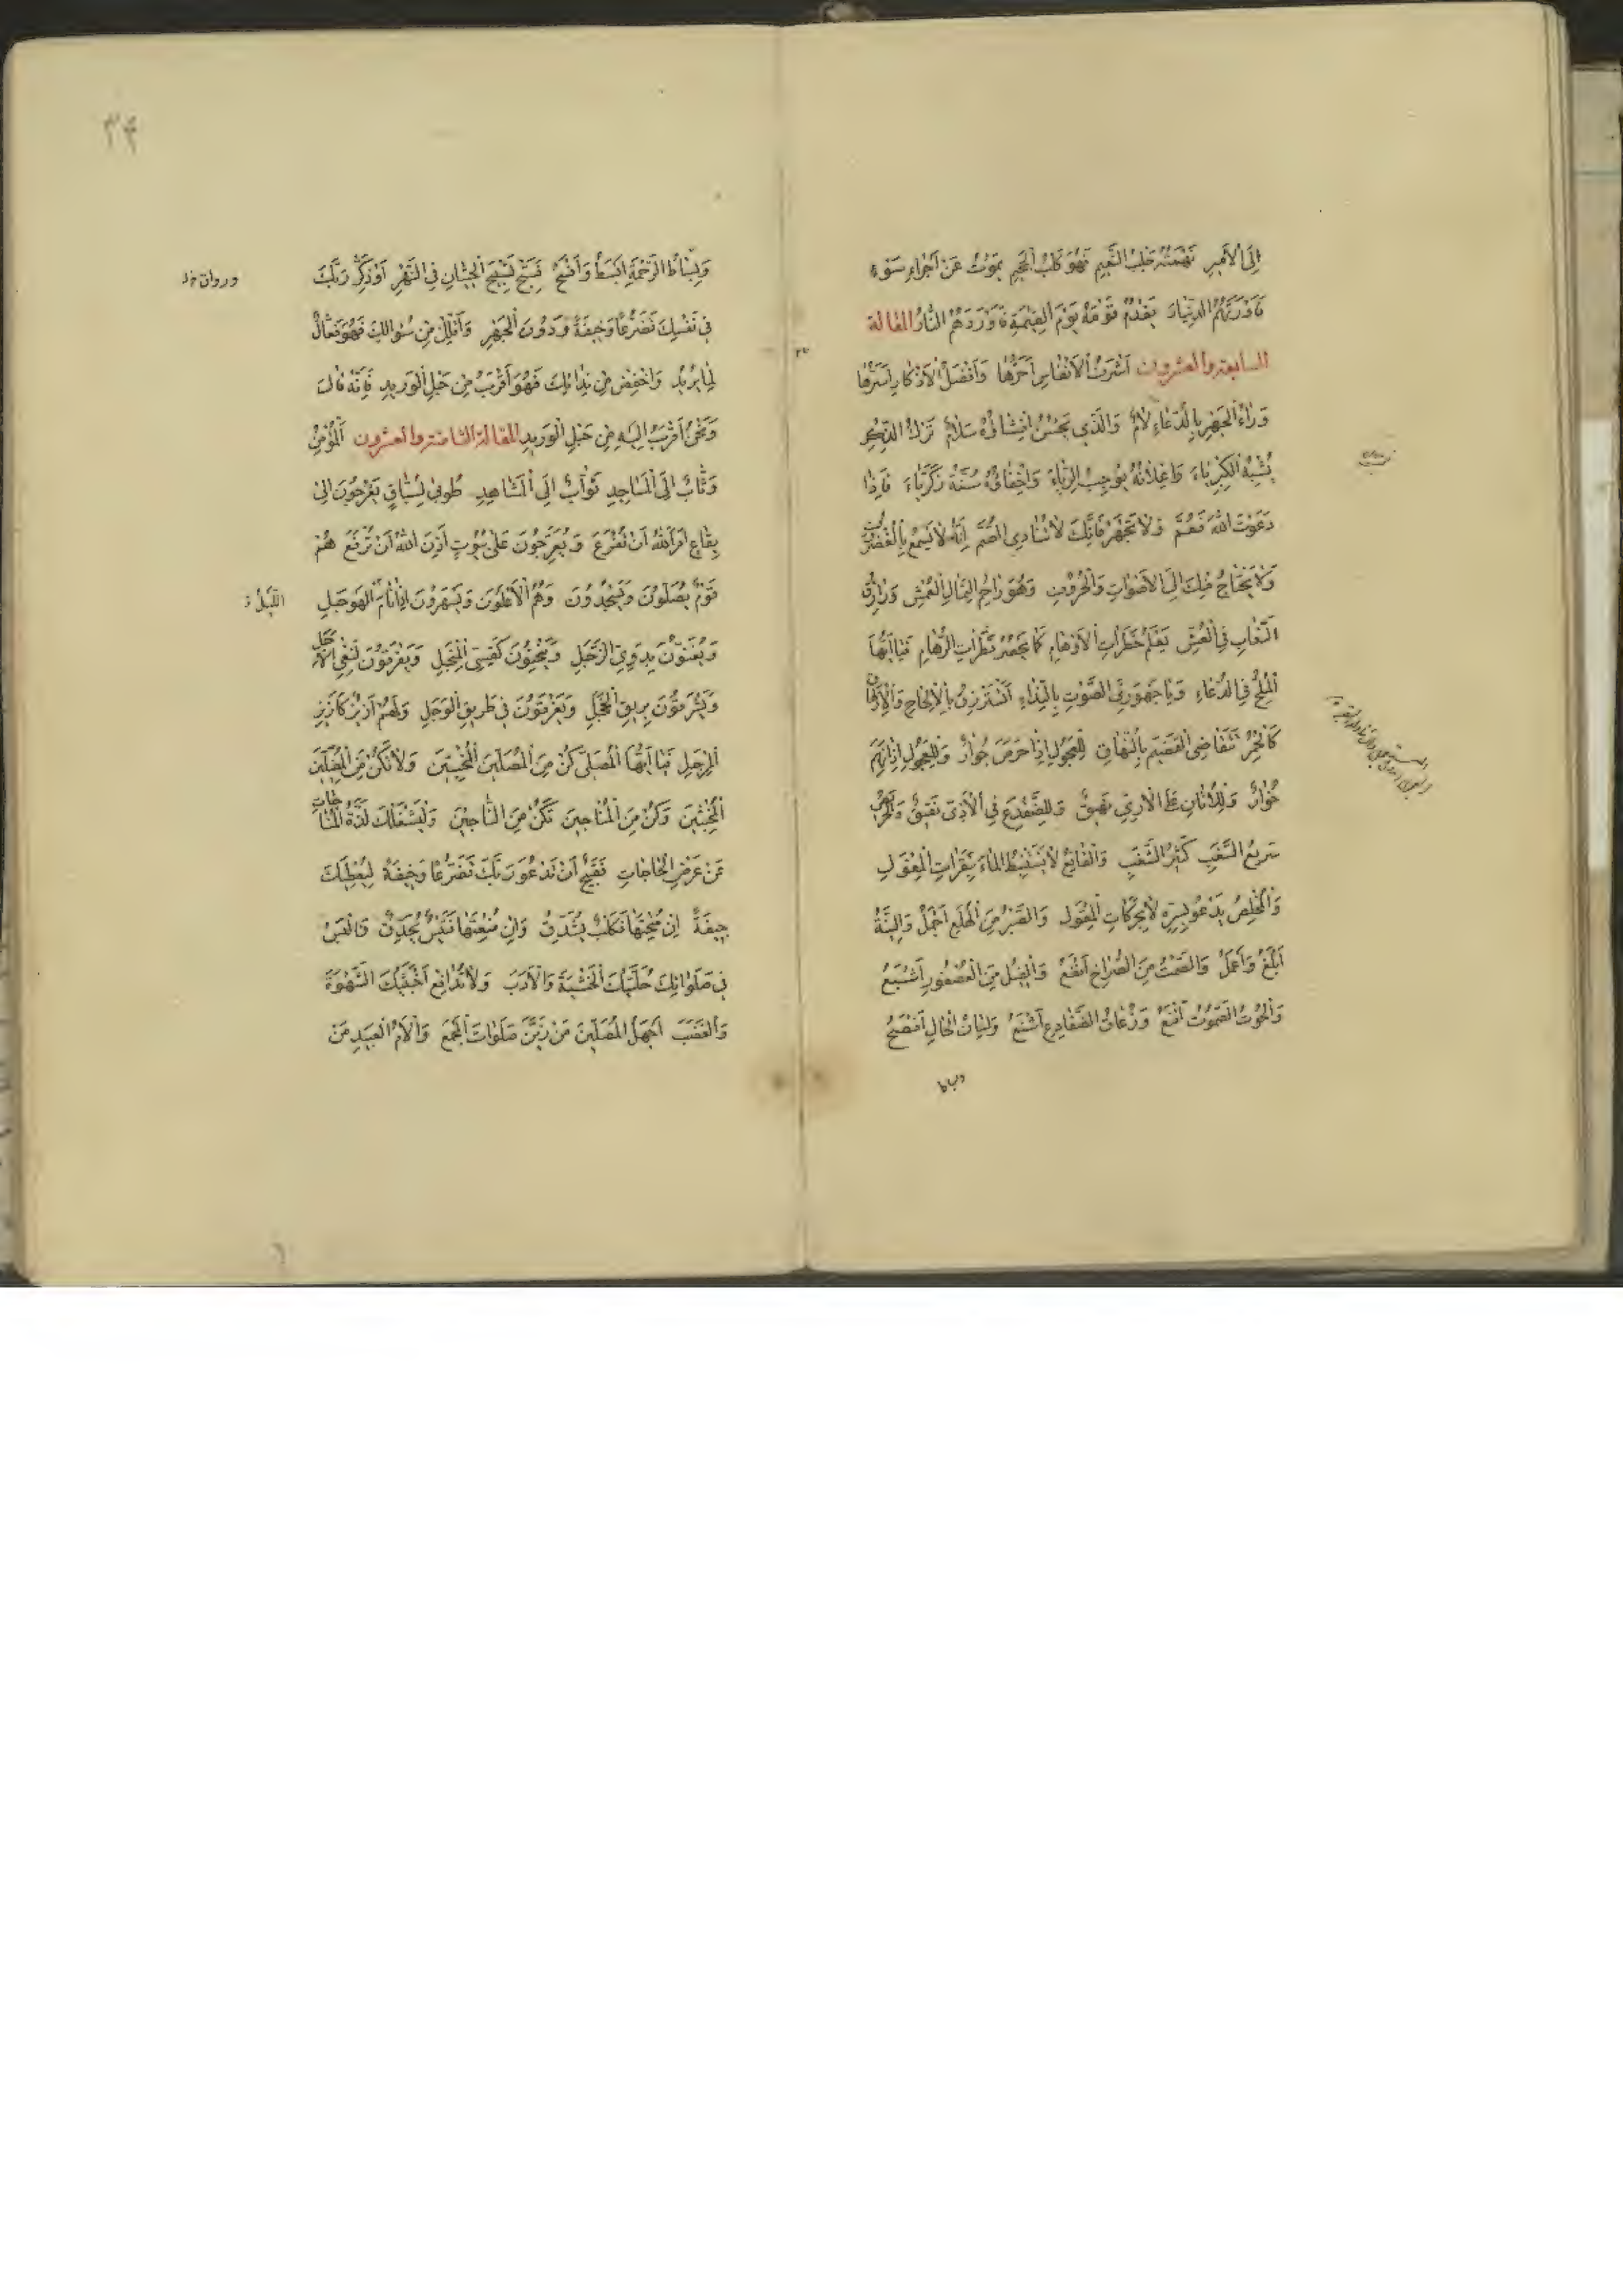 إِلَى الْأَمِيرِ نَهْمَتُهُ حَلْبُ النَّعِيمِ فَهُوَ كَلْبُ الْجَحِيمِ يَمُوتُ عَنْ أَجْرَاءِ سَوْءٍ
فَأَوْرَثَهُمُ الدِّينَارَ يَقْدُمُ قَوْمَهُ يَوْمَ الْقِيٰمَةِ فَأَوْرَدَهُمُ النَّارَ المقالة
السابعة والعشرون أَشْرَفُ الْأَنْفَاسِ أَحَرُّهَا وَأَفْضَلُ الْأَذْكَارِ أَسَرُّهَا
وَرَاءَ الْجَهْرِ بِالدُّعَاءِ لَامٌ وَالَّذِي يَحْسُنُ إِفْشَاؤُهُ سَلَامٌ تَرْكُ الذِّكْرِ
يُشْبِهُ الْكِبْرِيَاءَ وَإِعْلَانُهُ يُوجِبُ الرِّيَاءَ وَإِخْفَاؤُهُ سُنَّةُ زَكَرِيَّاءَ فَإِذَا
دَعَوْتَ اللهَ فَعُمَّ وَلَا تَجْهَرْ فَإِنَّكَ لَا تُنَادِي الصُّمَّ إِنَّهُ لَا يَسْمَعُ بِالْغُضْرُوفِ
وَلَا يَحْتَاجُ مِنْكَ إِلَى الْأَصْوَاتِ وَالْحُرُوفِ وَهُوَ رَاحِمُ الثِّمَالِ الْعُمْشِ وَرَازِقُ
النَّعَّابِ فِي الْعُشِّ يَعْلَمُ خَطَرَاتِ الْأَوْهَامِ كَمَا يَحْصُرُ قَطَرَاتِ الرِّهَامِ فَيَا أَيُّهَا
الْمُلِحُّ فِي الدُّعَاءِ وَيَا جَهْوَرِيَّ الصَّوْتِ بِالنِّدَاءِ أَتَسْتَرْزِقُ بِالْإِلْحَاحِ وَالْإِرْهَاقِ
كَالْحُمُرِ تَتَقَاضَى الْقَضِيمَ بِالنُّهَاقِ لِلْعَجُولِ إِذَا حَرَصَ جُوَارٌ وَلِلْعِجَّوْلِ إِذَا نَهِمَ
خُوَارٌ وَلِلْأَتَانِ عَلَى الْآرِيِّ نَهِيقٌ وَلِلضِّفْدَعِ فِي الْآذِيِّ نَقِيقٌ وَالْحَرِيصُ
سَرِيعُ السَّغَبِ كَثِيرُ الشَّغَبِ وَالْقَانِعُ لَا يَسْتَنْبِطُ الْمَاءَ بِنَقَرَاتِ الْمِعْوَلِ
وَالْمُخْلِصُ يَدْعُو بِسِرِّهِ لَا بِحَرَكَاتِ الْمِقْوَلِ وَالصَّبْرُ مِنَ الْهَلَعِ أَجْمَلُ وَالنِّيَّةُ
أَبْلَغُ وَأَعْمَلُ وَالصَّمْتُ مِنَ الصُّرَاخِ أَنْفَعُ وَالْفِيلُ مِنَ الْعُصْفُورِ أَشْبَعُ
وَالْحُوتُ الصَّمُوتُ أَقْنَعُ وَزُعَاقُ الضَّفَادِعِ أَشْنَعُ وَلِسَانُ الْحَالِ أَفْصَحُ
وبساط
٣٤
وَبِسَاطُ الرَّحْمَةِ أَبْسَطُ وَأَفْسَحُ فَسَبِّحْ تَسْبِيحَ الْحِيتَانِ فِي النَّهْرِ وَاذْكُرْ رَبَّكَ
فِي نَفْسِكَ تَضَرُّعًا وَخِيفَةً وَدُونَ الْجَهْرِ وَأَقْلِلْ مِنْ سُؤَالِكَ فَهُوَ فَعَّالٌ
لِمَا يُرِيدُ وَاخْفِضْ مِنْ نِدَائِكَ فَهُوَ أَقْرَبُ مِنْ حَبْلِ الْوَرِيدِ فَإِنَّهُ قَالَ
وَنَحْنُ أَقْرَبُ إِلَيْهِ مِنْ حَبْلِ الْوَرِيدِ المقالة الثامنة والعشرون اَلْمُؤْمِنُ
وَثَّابٌ إِلَى الْمَسَاجِدِ تَوَّابٌ إِلَى الْمَشَاهِدِ طُوبَى لِسُبَّاقٍ يَعْرُجُونَ إِلَى
بِقَاعٍ أَمَرَ اللهُ أَنْ تُفْرَعَ وَيُعَرِّجُونَ عَلَى بُيُوتٍ أَذِنَ اللهُ أَنْ تُرْفَعَ هُمْ
قَوْمٌ يُصَلُّونَ وَيَسْجُدُونَ وَهُمُ الْأَعْلَوْنَ وَيَسْهَرُونَ إِذَا نَامَ الْهَوْجَلِ
وَيُغَنُّونَ بِدَوِيِّ الزَّجَلِ وَيَنْحَنُونَ كَقِسِيِّ الْمِنْجَلِ وَيَفْرَقُونَ لِنَفْيِ الْأَجَلِ
وَيَشْرَقُونَ بِرِيقِ الْخَجَلِ وَيَغْرَقُونَ فِي طَرِيقِ الْوَجَلِ وَلَهُمْ أَزِيزٌ كَأَزِيزِ
الْمِرْجَلِ فَيَا أَيُّهَا الْمُصَلِّي كُنْ مِنَ الْمُصَلِّينَ الْمُخْبِتِينَ وَلَا تَكُنْ مِنَ الْمُضِلِّينَ
الْمُخْبِثِينَ وَكُنْ مِنَ الْمُنَاجِينَ تَكُنْ مِنَ النَّاجِينَ وَلْيَشْغَلْكَ لَذَّةُ الْمُنَاجَاتِ
عَنْ عَرْضِ الْحَاجَاتِ فَقَبِيحٌ أَنْ تَدْعُوَ رَبَّكَ تَضَرُّعًا وَخِيفَةً لِيُعْطِيَكَ
جِيفَةً إِنْ مُنِحْتَهَا فَكَلْبٌ يَتَدَّقُ وَإِنْ مُنِعْتَهَا فَتَيْسٌ يُجَدِّقُ وَالْبَسْ
فِي صَلَوَاتِكَ حُلَّتَيْكَ الْخَشْيَةَ وَالْأَدَبَ وَلَا تُدَافِعْ أَخْبَثَيْكَ الشَّهْوَةَ
وَالْغَضَبَ أَجْهَلُ الْمُصَلِّينَ مَنْ زَيَّنَ صَلَوَاتِ الْجُمَعِ وَأَلْأَمُ الْعَبِيدِ مَنْ